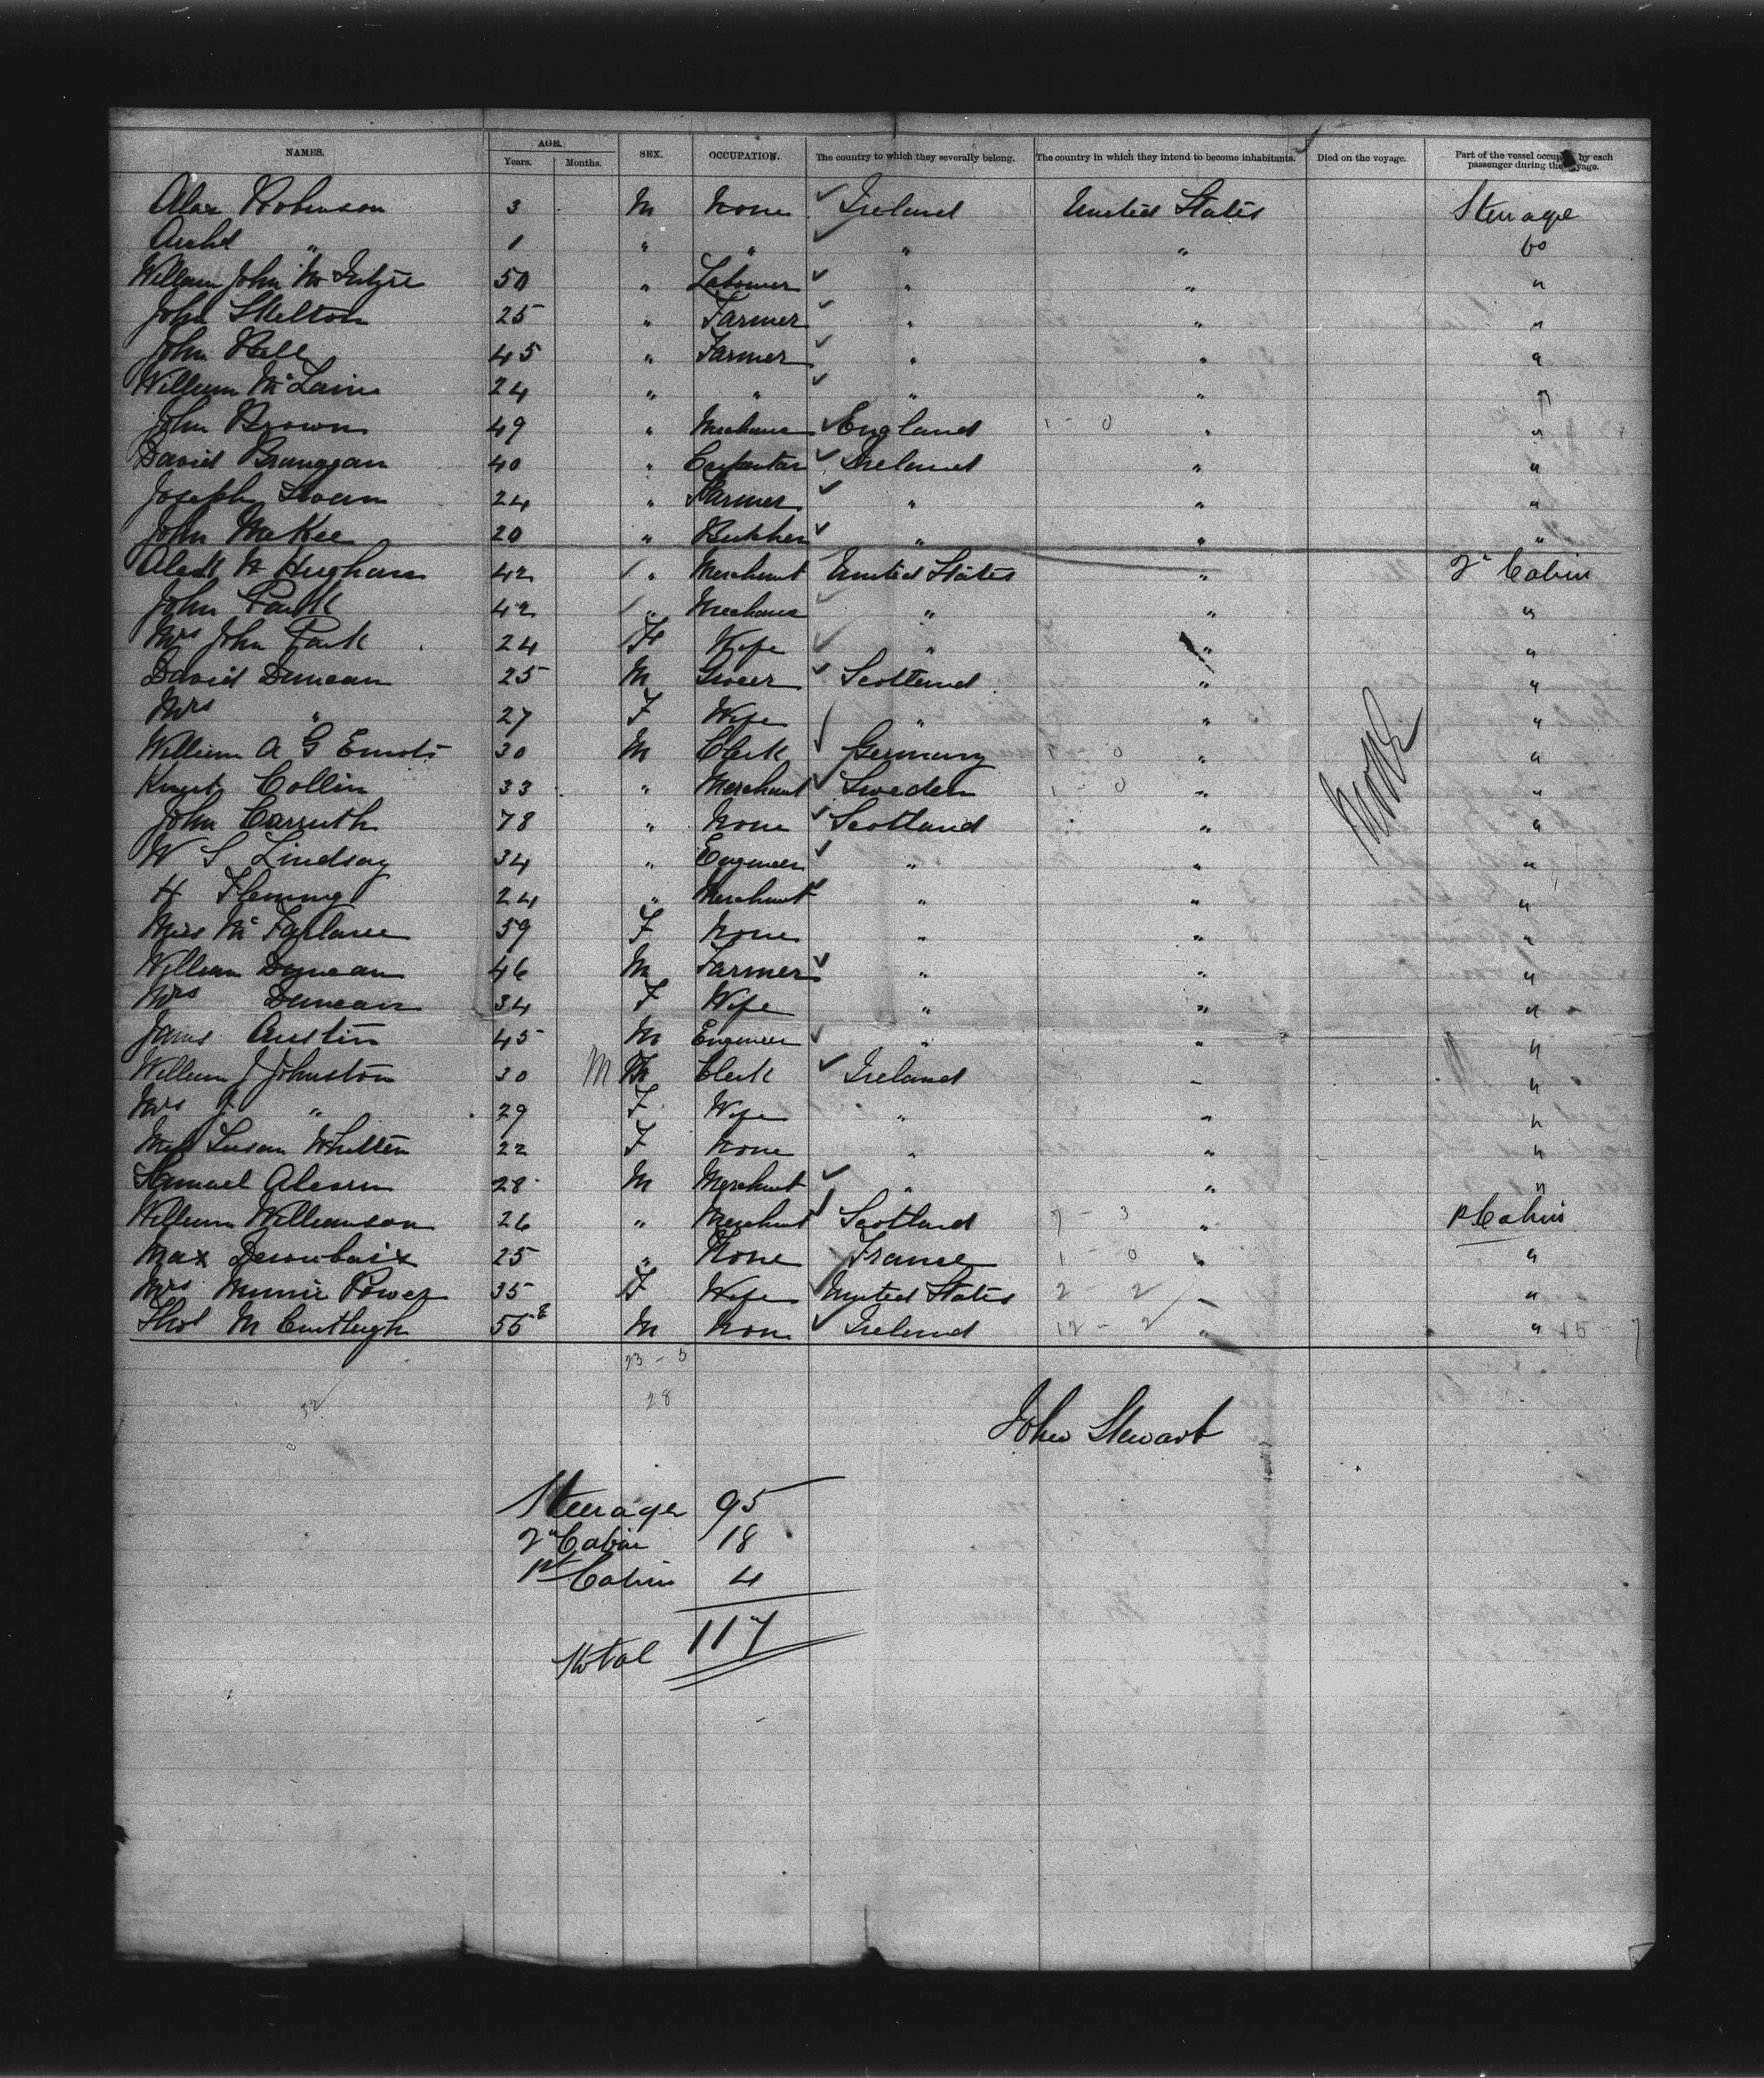 NAMES. AGE. SEX. OCCUPATION. The country to which they severally belong. The country in which they intend to become inhabitants. Died on the voyage. Part of the vessel occup by each
Years. Months. passenger during the yage.
Alex Robinson 3 M None ✓ Ireland United States Steerage
Archd " 1 " " ✓ " " Do
William John McIntyre 50 " Labourer ✓ " " "
John Skelton 25 " Farmer ✓ " " "
John Hall 45 " Farmer ✓ " " "
William McLaine 24 " " ✓ " " "
John Brown 49 " Mechanic ✓ England 1 - 0 " "
David Branggan 40 " Carpenter ✓ Ireland " "
Joseph 24 " Farmer ✓ " " "
John McKee 20 " Butcher ✓ " " "
Alexr Hugham 42 " Merchant United States " 2d Cabin
John Park 42 " Mechanic ✓ " " "
Mrs John Park 24 F Wife ✓ " " "
David Duncan 25 M Grocer ✓ Scotland " "
Mrs " 27 F Wife ✓ " " "
William A G 30 M Clerk ✓ Germany 0 " "
Collin 33 " Merchant ✓ Sweden 1 - 0 " "
John Carruth 78 " None ✓ Scotland " "
W S Lindsay 34 " Engineer ✓ " " "
H Fleming 24 " Merchant ✓ " " "
Miss McFarlane 59 F None " " "
William Duncan 46 M Farmer ✓ " " "
Mrs Duncan 34 F Wife " " "
James Austin 45 M Engineer ✓ " " "
William J Johnston 30 M M Clerk ✓ Ireland " "
Mrs J " 29 F Wife " " "
Miss Susan Whitten 22 F None " " "
Samuel 28 M Merchant ✓ " " "
William Williamson 26 " Merchant ✓ Scotland 7 - 3 " 1st Cabin
Max 25 " None ✓ France 1 - 0 " "
Mrs Minnie Power 35 F Wife ✓ United States 2 2 " "
Thos 55 M None ✓ Ireland 12 - 2 " " 15 - 7
23 - 5
28
John Stewart
Steerage 95
2d Cabin 18
1st Cabin 4
Total 117